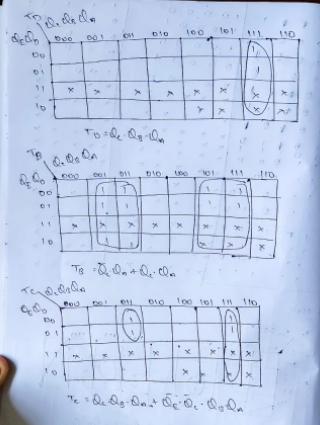 TD Qc QB QA
QE QD 000 001 011 010 100 101 111 110
00 1
01 1
11 x x x x x x x x
10 x x x x
TD = Qc · QB · QA
TB Qc QB QA
QE QD 000 001 011 010 100 101 111 110
00 1 1 1 1
01 1 1 1 1
11 x x x x x x x x
10 1 1 x x x x
TB = Q̅c QA + Qc · QA
Tc Qc QB QA
QE QD 000 001 011 010 100 101 111 110
00 1 1
01 1 1
11 x x x x x x x x
10 x x x x
Tc = Qc QB · QA + Q̅E · Q̅c · QB QA